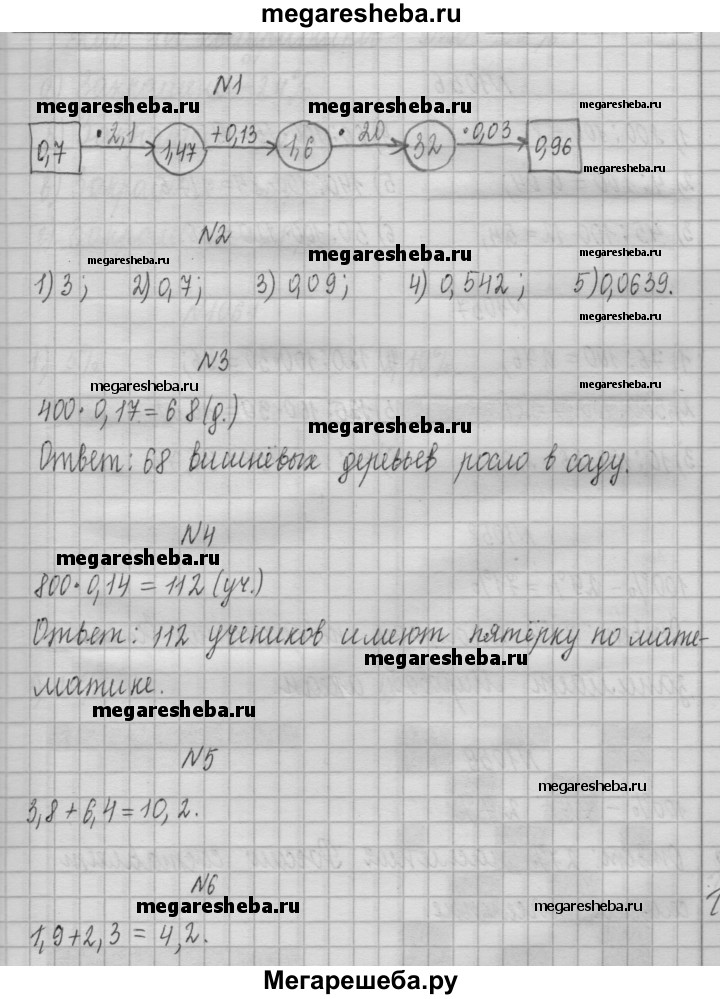 megaresheba.ru
N1
megaresheba.ru megaresheba.ru megaresheba.ru
0,7 ·2,1 1,47 +0,13 1,6 · 20 32 ·0,03 0,96
megaresheba.ru
N2
megaresheba.ru megaresheba.ru megaresheba.ru
1) 3; 2) 0,7; 3) 0,09; 4) 0,542; 5) 0,0639.
megaresheba.ru
N3
megaresheba.ru megaresheba.ru
400 · 0,17 = 68 (д.)
megaresheba.ru
Ответ: 68 вишнёвых деревьев росло в саду.
N4
megaresheba.ru
800 · 0,14 = 112 (уч.)
Ответ: 112 учеников имеют пятёрку по мате-
megaresheba.ru
матике.
megaresheba.ru
N5
megaresheba.ru
3,8 + 6,4 = 10,2.
N6
megaresheba.ru megaresheba.ru
1,9 + 2,3 = 4,2.
Мегарешеба.ру